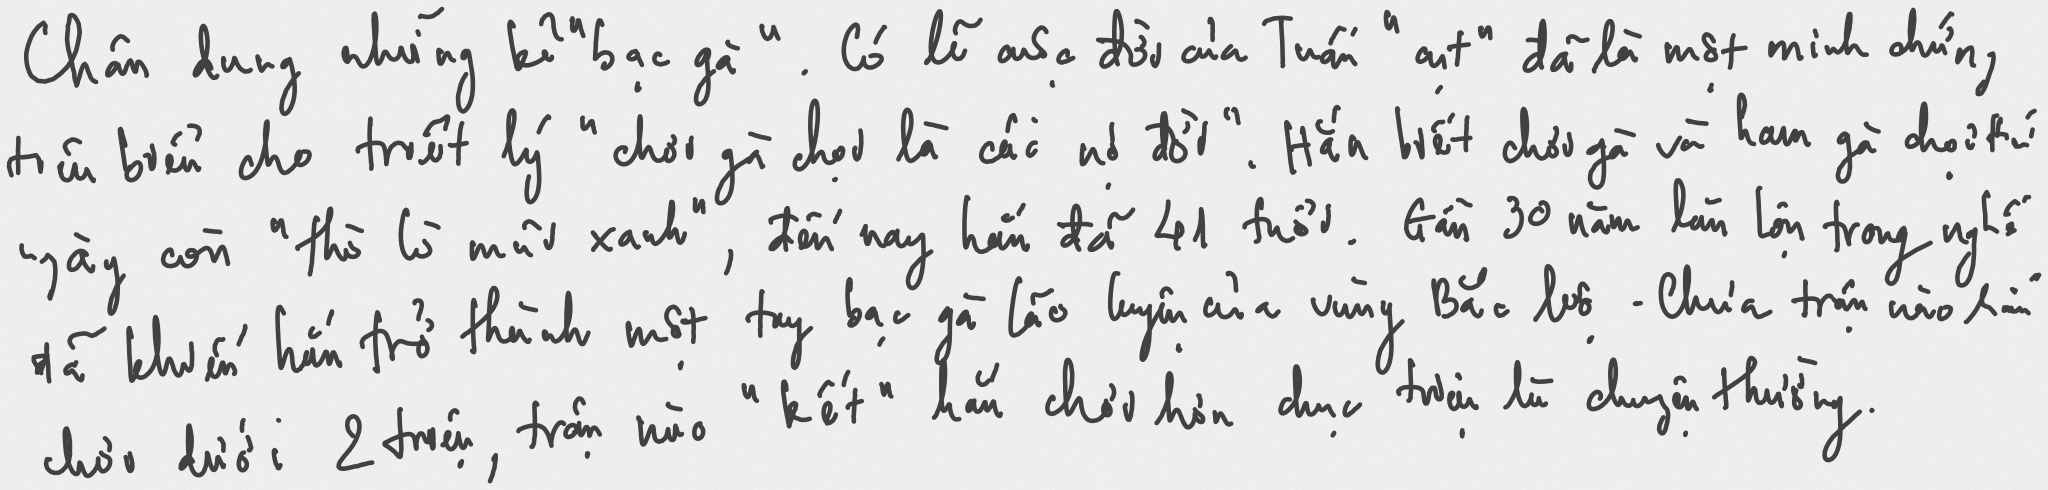 Chân dung những kẻ "bạc gà". Có lẽ cuộc đời của Tuấn "cụt" đã là một minh chứng
tiêu biểu cho triết lý "chơi gà chọi là cái nợ đời". Hắn biết chơi gà và ham gà chọi từ
ngày còn "thò lò mũi xanh", đến nay hắn đã 41 tuổi. Gần 30 năm lăn lộn trong nghề
đã khiến hắn trở thành một tay bạc gà lão luyện của vùng Bắc bộ - Chưa trận nào hắn
chơi dưới 2 triệu, trận nào "kết" hắn chơi hơn chục triệu là chuyện thường.